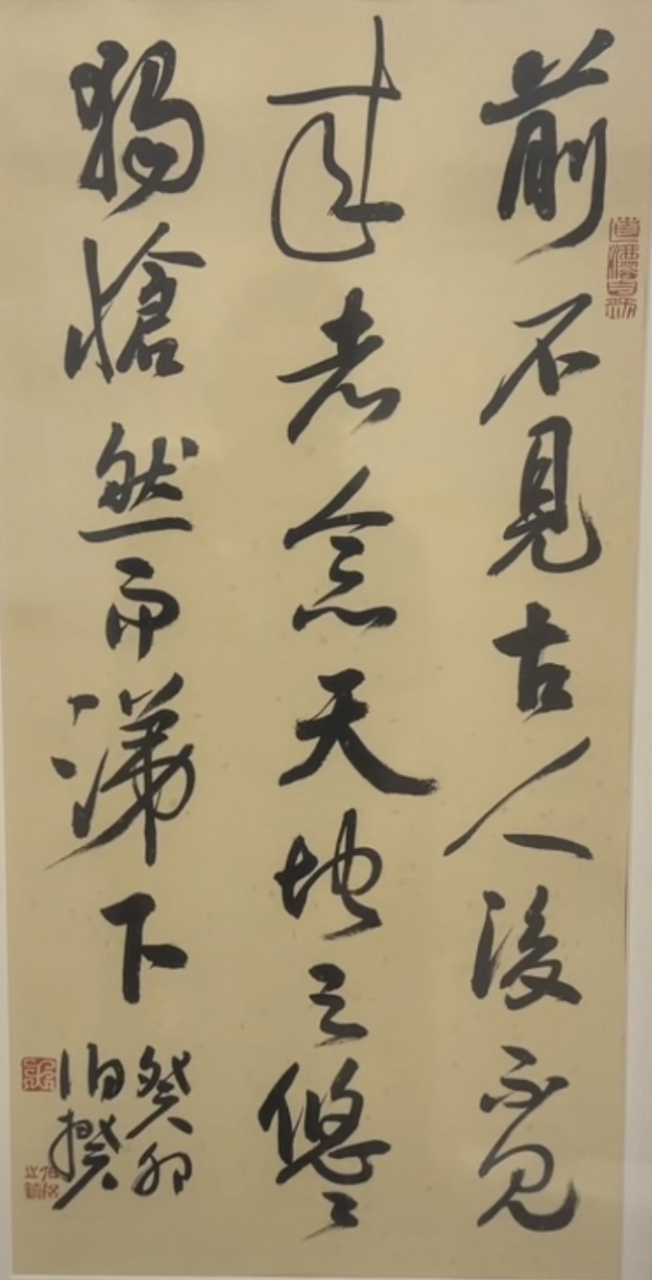 前不見古人後不見
來者念天地之悠〻
獨愴然而涕下
癸卯
伯揆